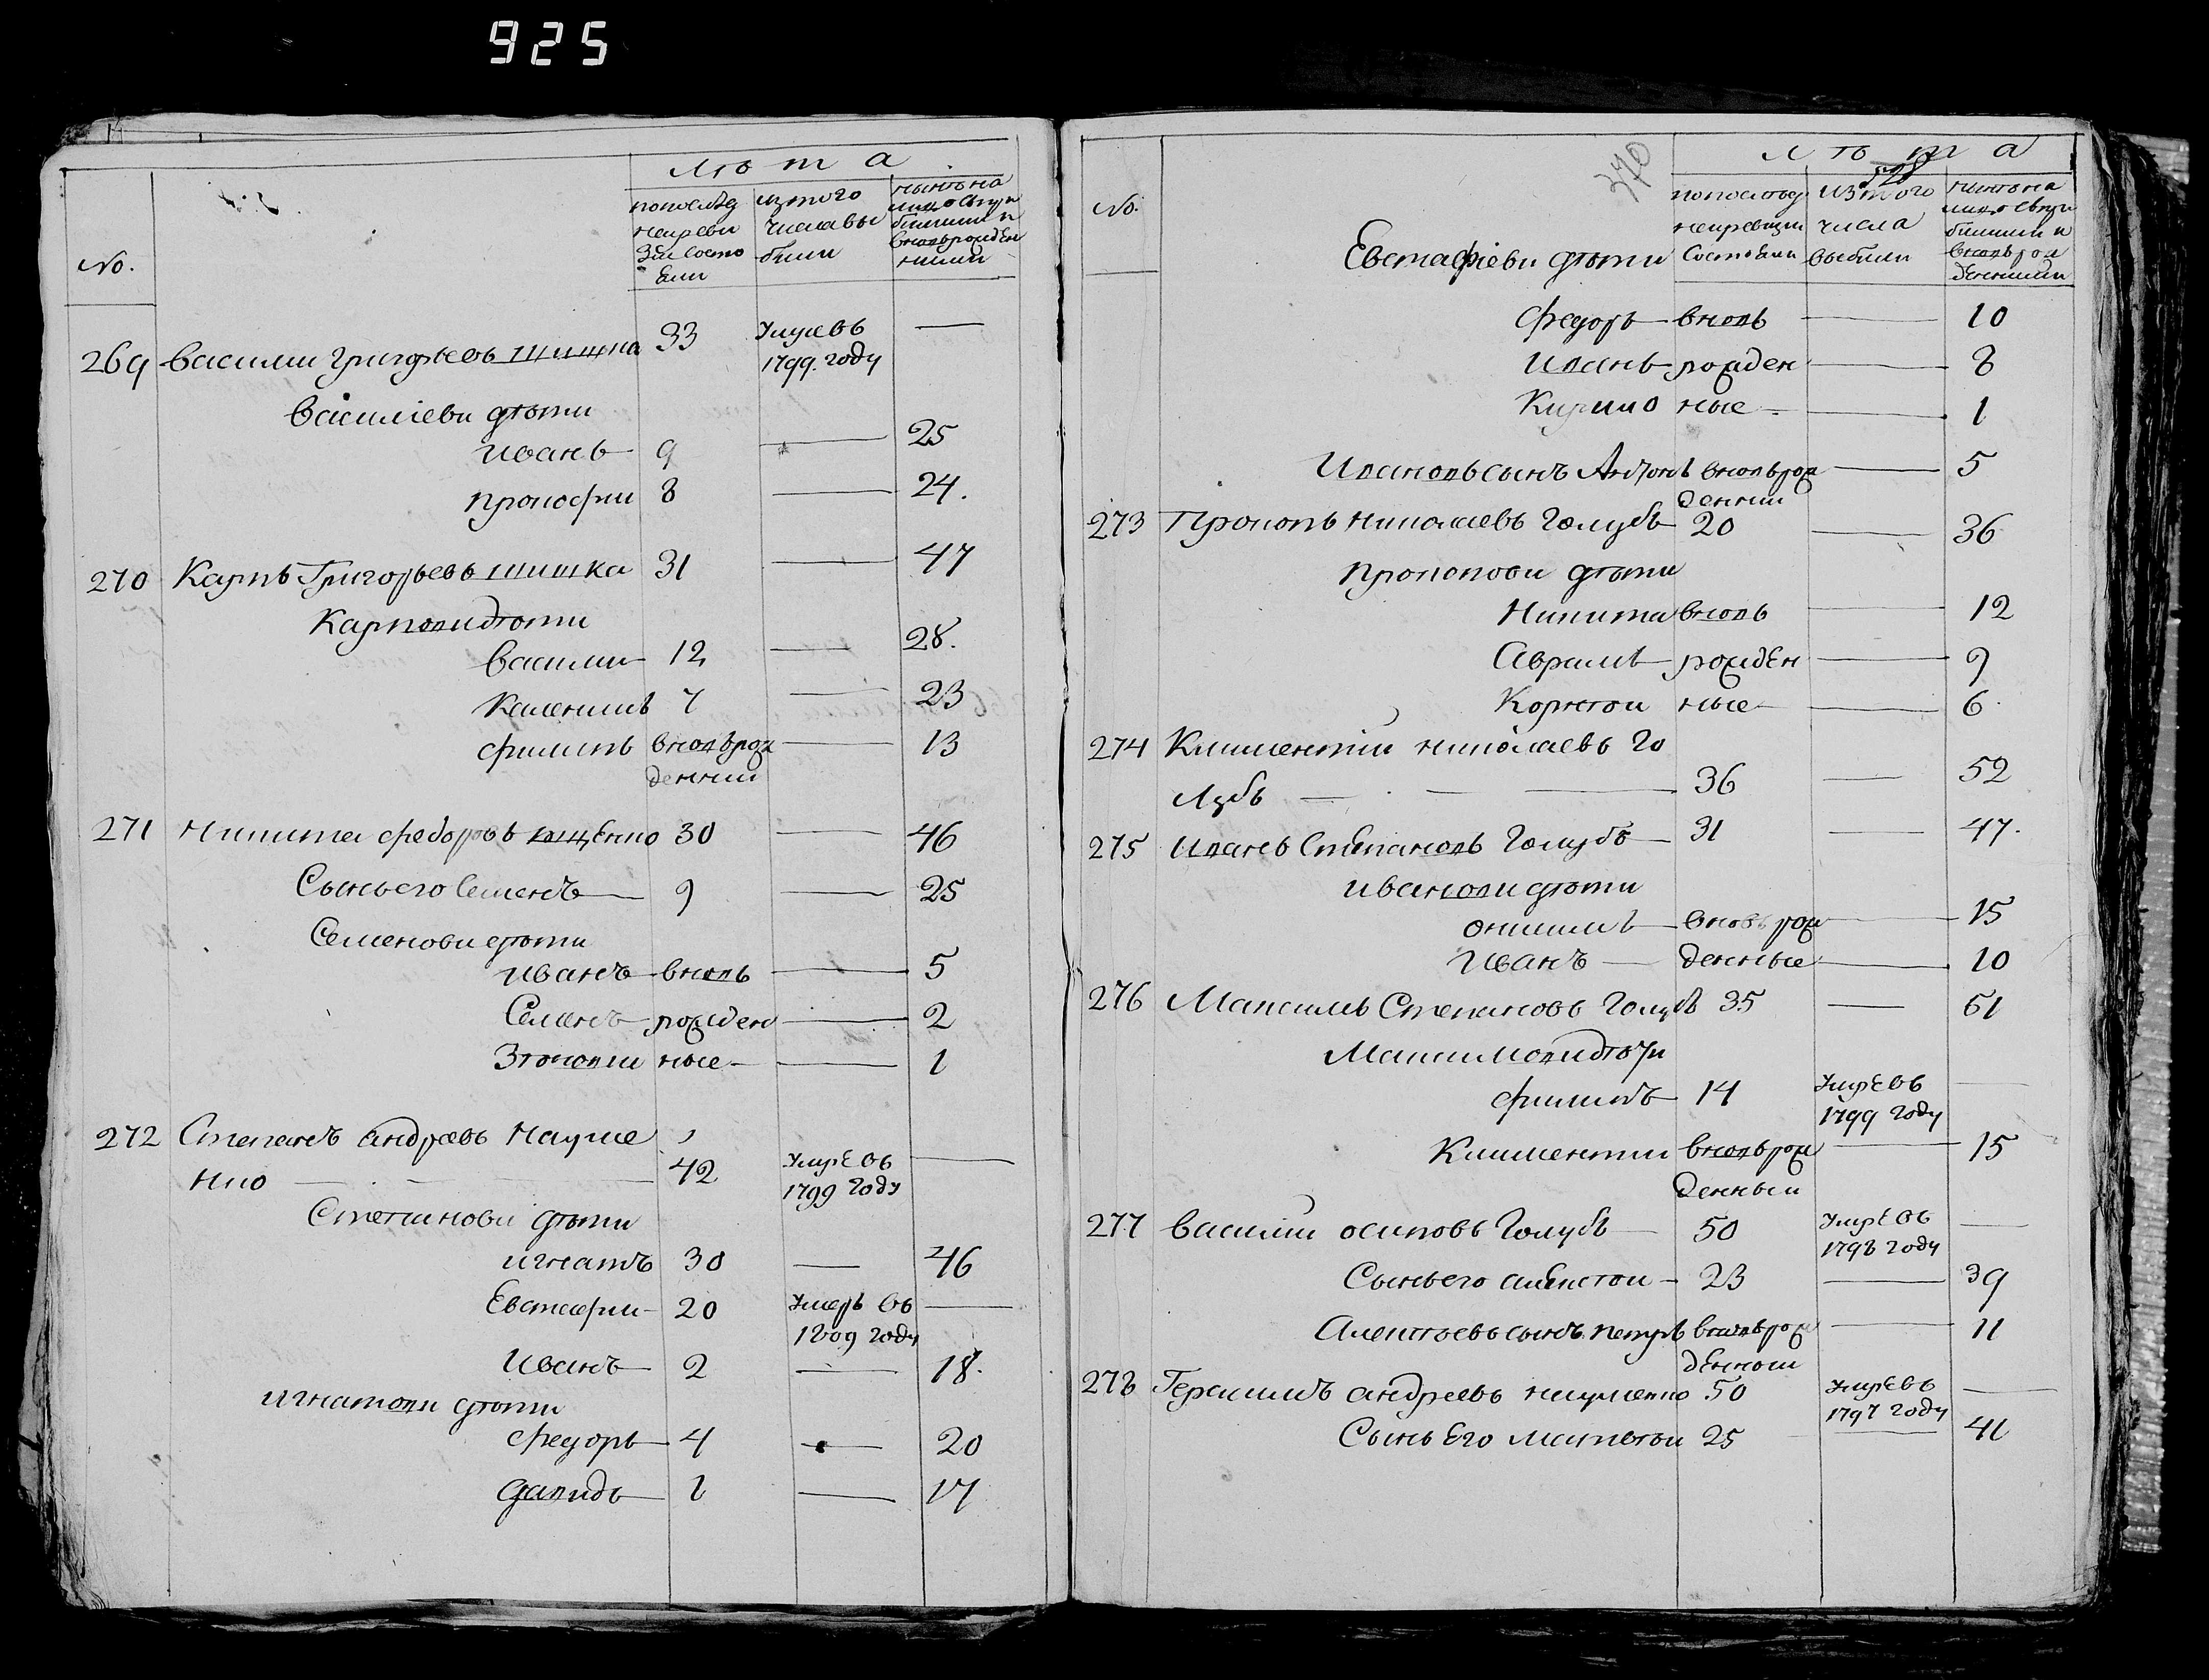 925
Лѣта
No.
по послѣд
ней реви
зіи состо
яли
изъ того
числа вы
были
нынѣ на
лицо съ при
былыми и
вновь рожден
ными
269 Василии Григорьевъ Шишка 33 Умре въ —
1799. году
Василіеви дѣти
Иванъ 9 — 25
Прокофии 8 — 24.
270 Карпъ Григорьевъ Шишка 31 — 47
Карпови дѣти
Василии 12 — 28.
7 — 23
Филипъ вновь рож — 13
денни
271 Никита Федоровъ 30 — 46
Сынъ его Семенъ 9 — 25
Семенови дѣти
Иванъ вновь — 5
Семенъ рожден — 2
ные — 1
272 Степанъ Андреевъ Науме
нко — 42 Умре въ —
1799 году
Степанови дѣти
Игнатъ 30 — 46
Евстафии 20 Умеръ въ —
1809 году
Иванъ 2 — 18.
Игнатови дѣти
Федоръ 4 — 20
Давидъ 1 — 17
370
Лѣта
528
No.
по послѣд
ней ревизии
состояли
изъ того
числа
выбыли
нынѣ на
лицо съ при
былыми и
вновь рож
денными
Евстафіеви дѣти
Федоръ вновь — 10
Иванъ рожден — 8
Кирило ные — 1
Ивановъ сынъ Антонъ вновь рож — 5
денни
273 Прокопъ Николаевъ Голубъ 20 — 36
Прокопови дѣти
Никита вновь — 12
Аврамъ рожден — 9
Корнѣи ные — 6
274 Климентіи Николаевъ Го
лубъ — 36 — 52
275 Иванъ Степановъ Голубъ 31 — 47.
Иванови дѣти
Онисимъ вновь рож — 15
Иванъ — денные — 10
276 Максимъ Степановъ Голубъ 35 — 51
Максимови дѣти
Филипъ 14 Умре въ —
1799 году
Климентии вновь рож — 15
денныи
277 Василіи Осиповъ Голубъ — 50 Умре въ —
1798 году
Сынъ его Алексѣи 23 — 39
Алексѣевъ сынъ Петръ вновь рож — 11
денныи
278 Герасимъ Андреевъ Науменко 50 Умре въ —
1797 году
Сынъ его Матвѣи 25 — 41